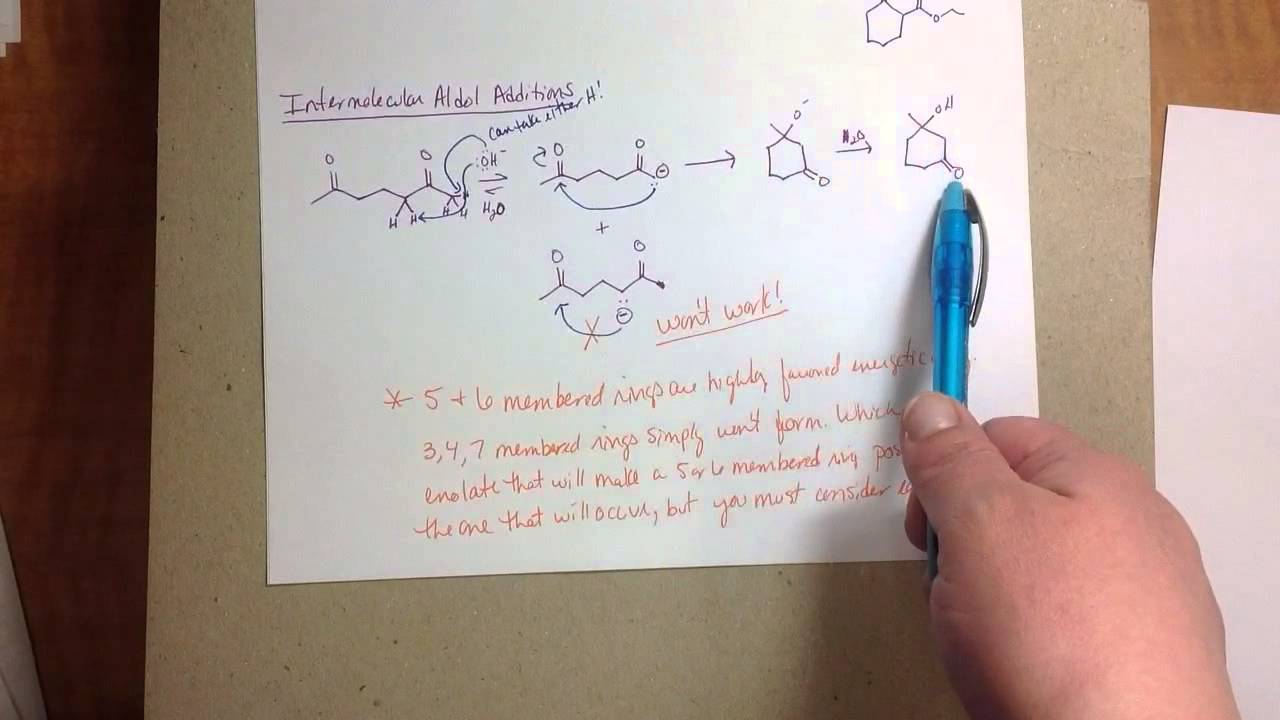 O
Intermolecular Aldol Additions
can take either H!
O O :OH⁻ H₂O H H H H
O O ⊖ :
O⁻ O
H₂O
OH O
+
O O : ⊖
X
won't work!
* 5 + 6 membered rings are highly favored
3, 4, 7 membered rings simply won't form. Which
enolate that will make a 5 or 6 membered ring
the one that will occur, but you must consider